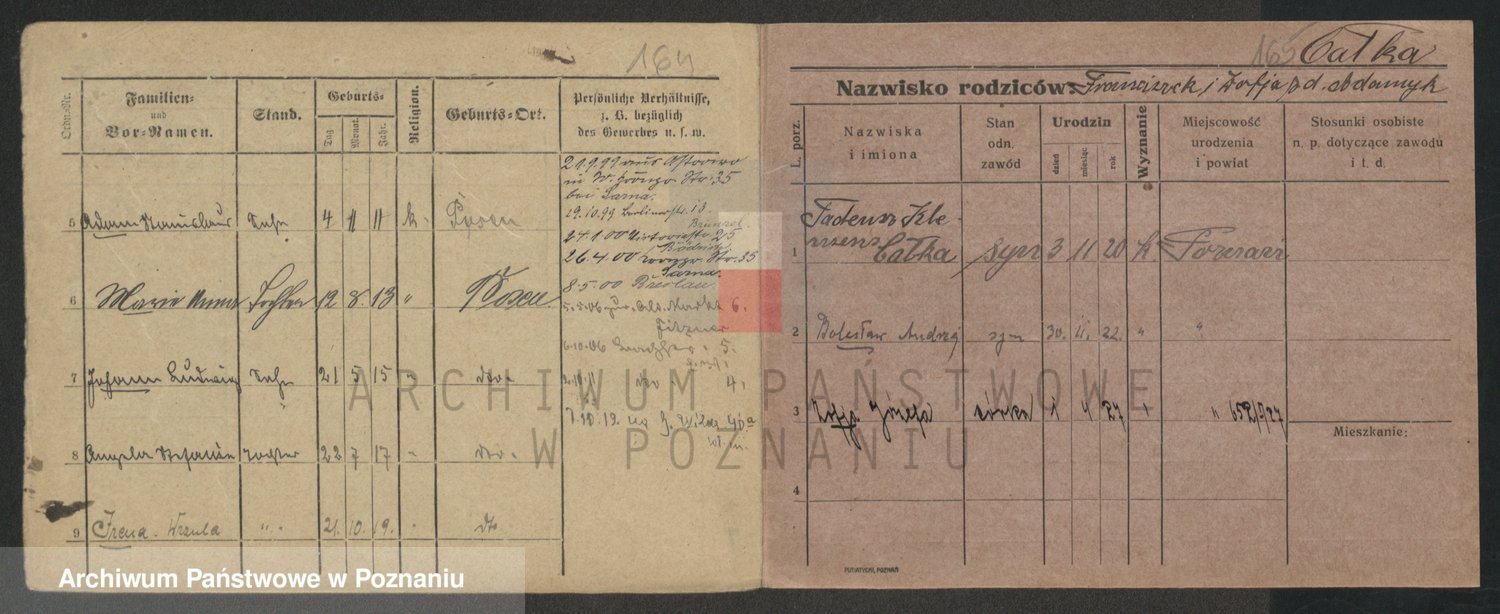 164
Ordn.-Nr.
Familien-
und
Vor-Namen.
Stand.
Geburts-
Tag
Monat.
Jahr.
Religion.
Geburts-Ort.
Persönliche Verhältnisse,
z. B. bezüglich
des Gewerbes u. s. w.
5 Adam Stanislaus Sohn 4 11 11 k. Posen
6 Marie Anna Tochter 12 8 13 " Posen
7 Johann Ludwig Sohn 21 5 15 " dto.
8 Angela Stefanie Tochter 22 7 17 " dto.
9 Irena Urzula " 21. 10. 19. " dto
21.9.99 aus
in Str. 35
bei Sarna.
19.10.99 Berlinerstr. 18
24.1.00 Victoriastr 25
26.4.00 Str. 35
Sarna.
8.5.00 Breslau.
5.5.06 Markt 6.
6.10.06 5.
dto 4.
7.10.12
165
Całka
Nazwisko rodziców: Franciszek i Zofja z d. Adamyk
L. porz.
Nazwiska
i imiona
Stan
odn.
zawód
Urodzin
dzień
miesiąc
rok
Wyznanie
Miejscowość
urodzenia
i powiat
Stosunki osobiste
n. p. dotyczące zawodu
i t. d.
1 Tadeusz Kle-
mens
Całka syn 3 11 20 k. Poznań
2 Bolesław Andrzej syn 30. 11. 22. " "
3 Zofja Józefa córka 1 4 27 " " 652/27
Mieszkanie:
4
PUTIATYCKI, POZNAŃ
ARCHIWUM PAŃSTWOWE
W POZNANIU
Archiwum Państwowe w Poznaniu